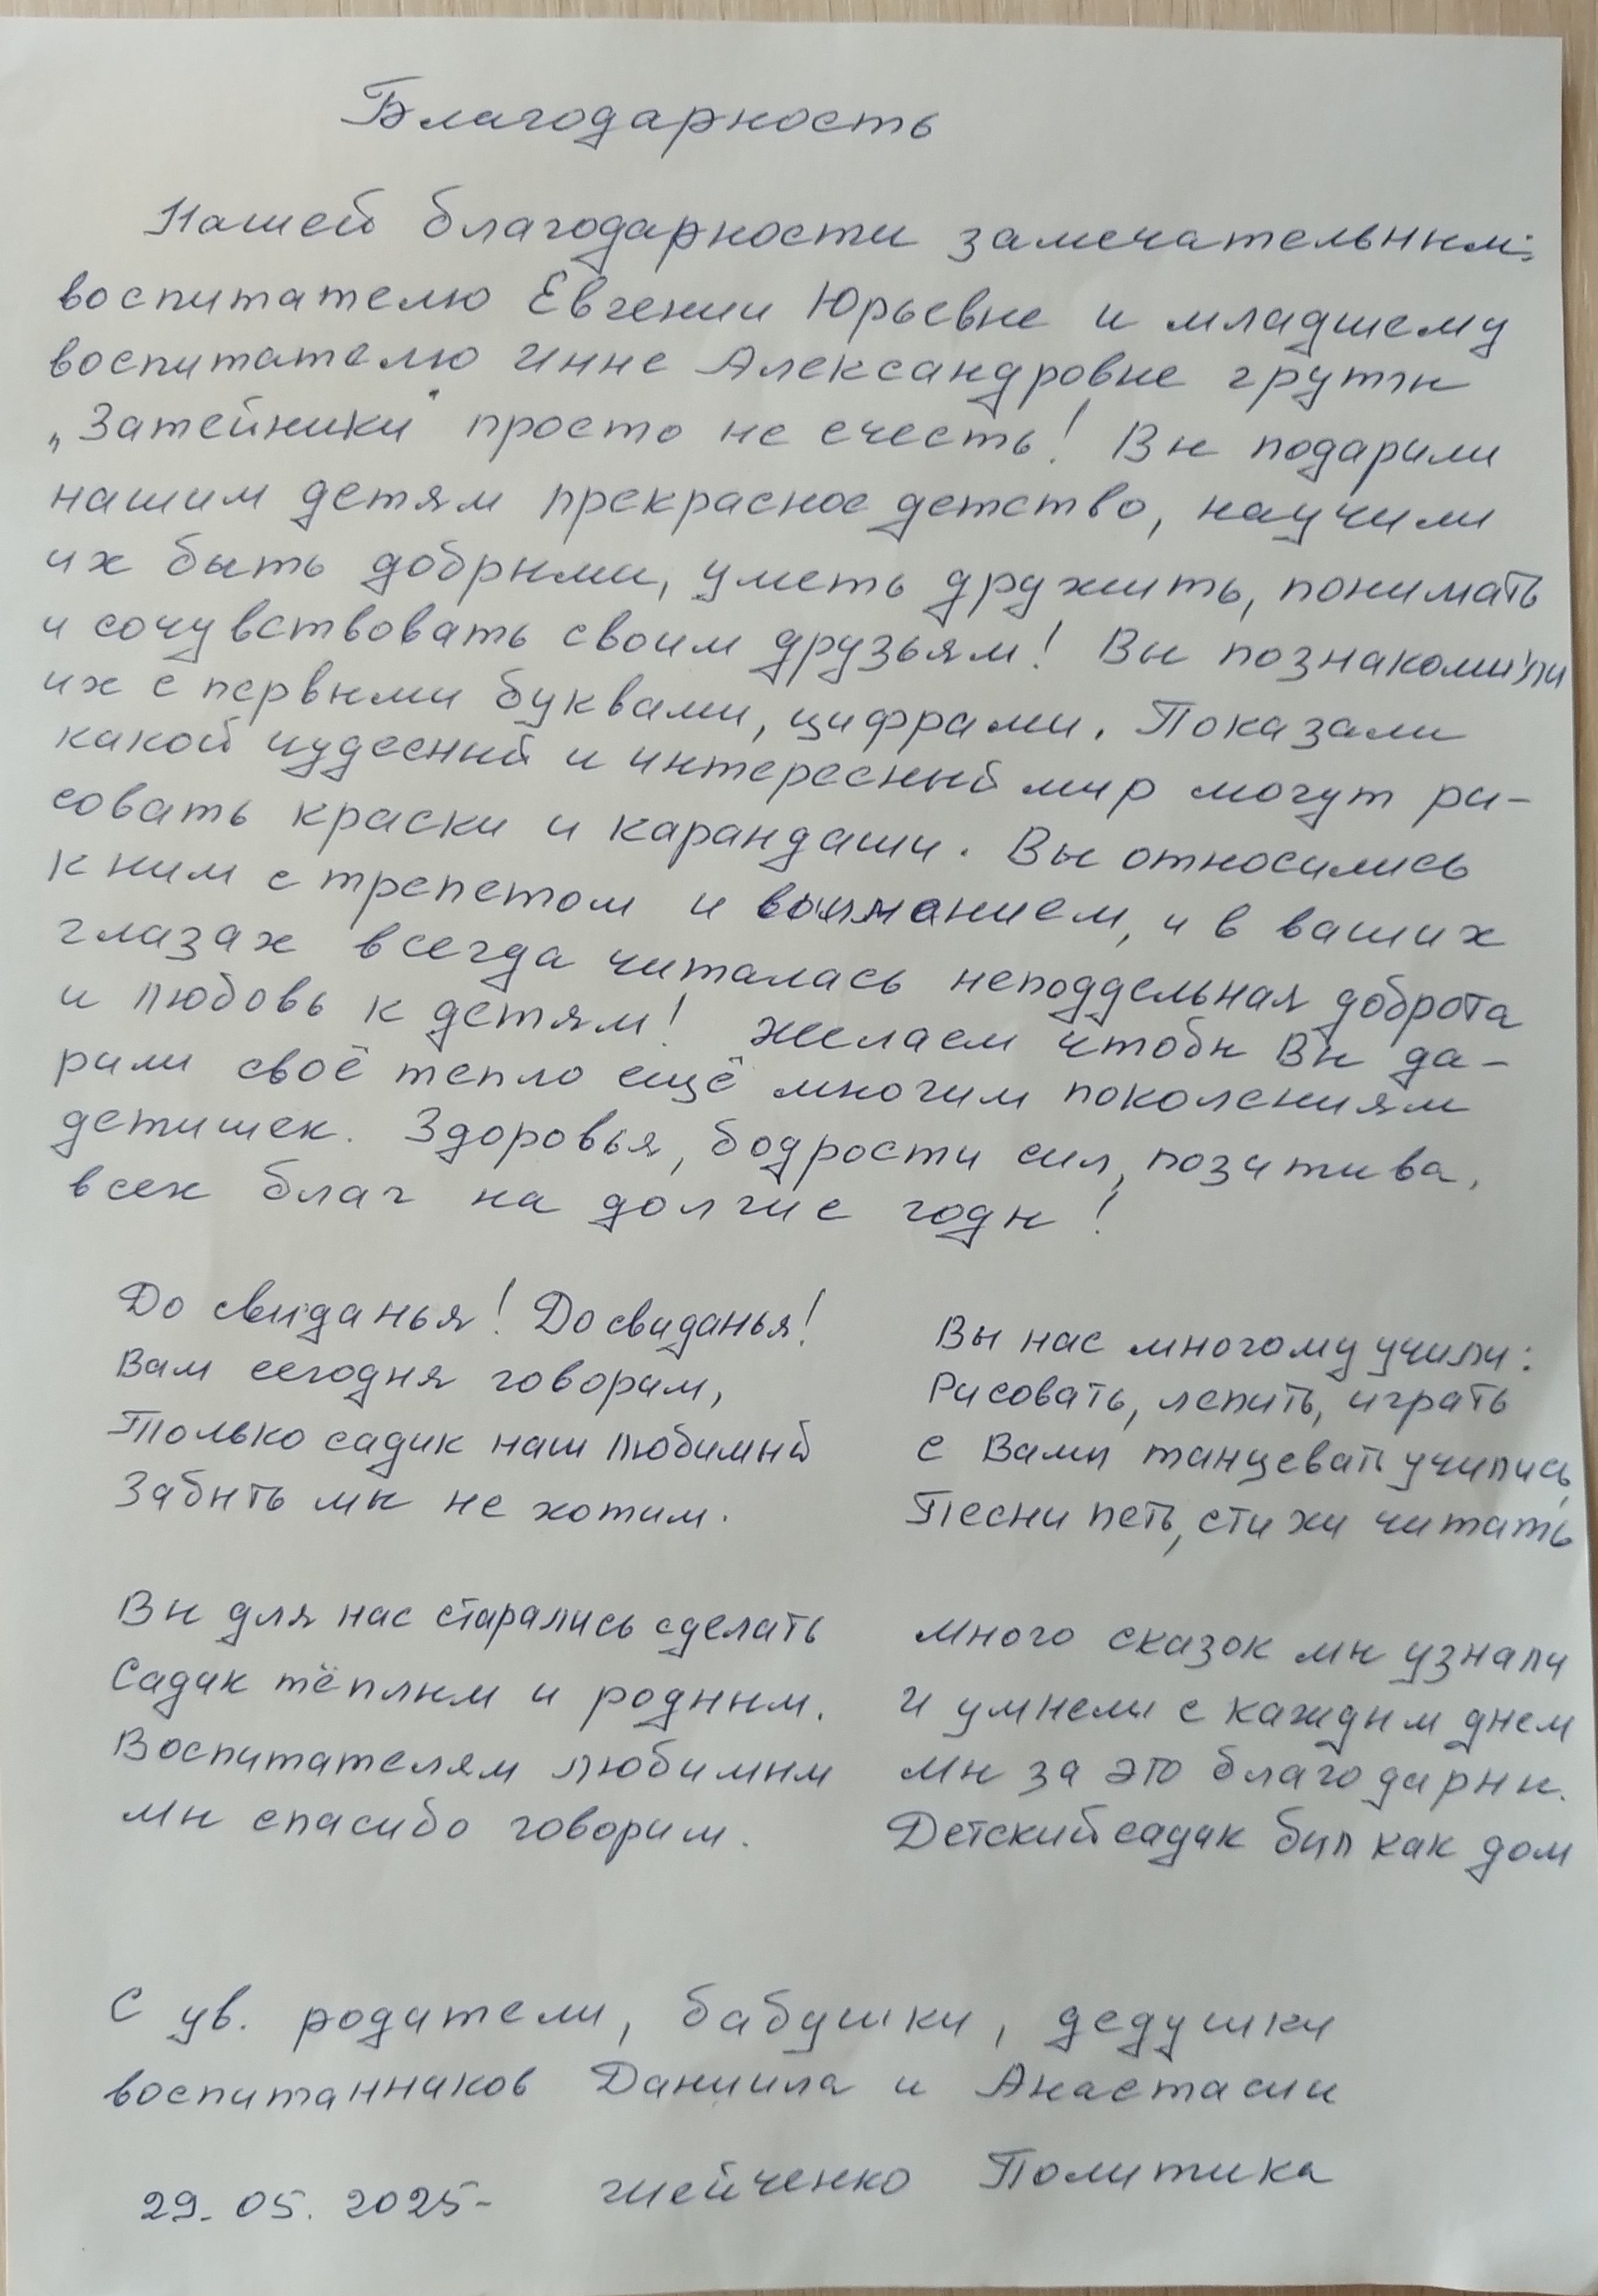 Благодарность
Нашей благодарности замечательным:
воспитателю Евгении Юрьевне и младшему
воспитателю Инне Александровне группы
„Затейники" просто не счесть! Вы подарили
нашим детям прекрасное детство, научили
их быть добрыми, уметь дружить, понимать
и сочувствовать своим друзьям! Вы познакомили
их с первыми буквами, цифрами. Показали
какой чудесный и интересный мир могут ри-
совать краски и карандаши. Вы относились
к ним с трепетом и вниманием, и в ваших
глазах всегда читалась неподдельная доброта
и любовь к детям! Желаем чтобы Вы да-
рили своё тепло ещё многим поколениям
детишек. Здоровья, бодрости сил, позитива,
всех благ на долгие годы!
До свиданья! До свиданья!
Вам сегодня говорим,
Только садик наш любимый
Забыть мы не хотим.
Вы для нас старались сделать
Садик тёплым и родным.
Воспитателям любимым
мы спасибо говорим.
Вы нас многому учили:
Рисовать, лепить, играть
с Вами танцевать учились,
Песни петь, стихи читать
много сказок мы узнали
И умнели с каждым днем
мы за это благодарны.
Детский садик был как дом
С ув. родители, бабушки, дедушки
воспитанников Даниила и Анастасии
29.05.2025- Политика